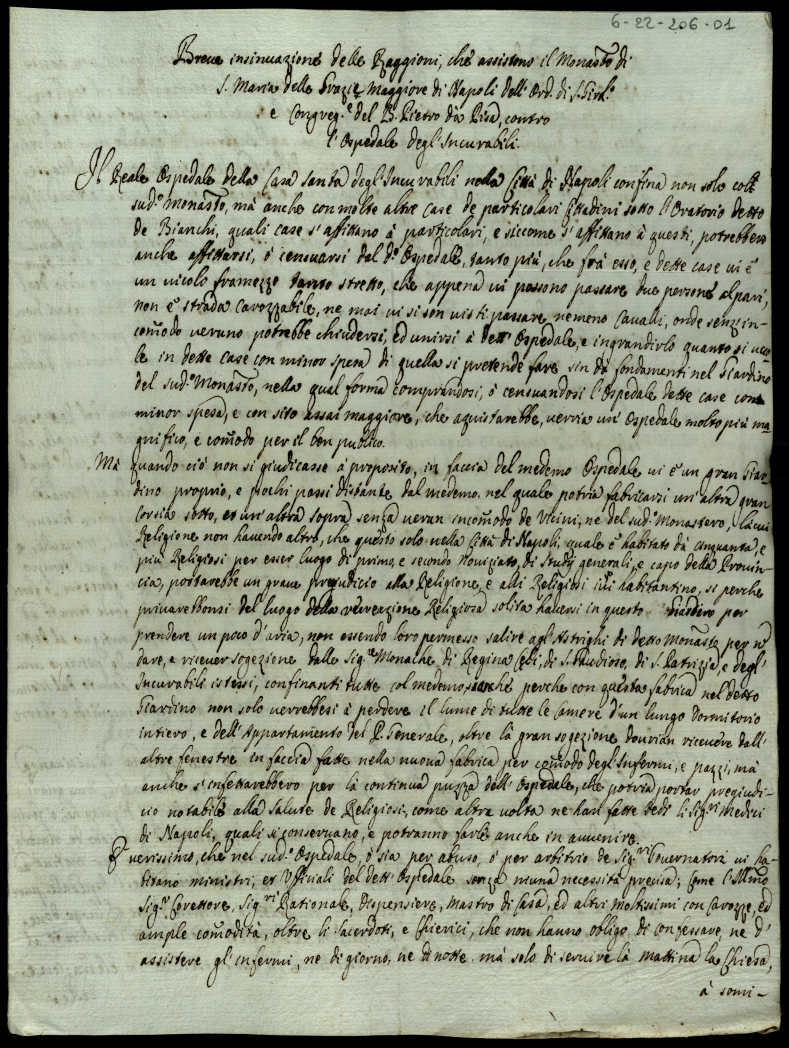 6-22-206-01
Breve insinuazione delle Raggioni, che assistono il Monast.o di
S. Maria delle Grazie Maggiore di Napoli dell'Ord. di S. Girol.o
e Congreg.e del B. Pietro da Pisa, contro
l'Ospedale degl'Incurabili.
Il Reale Ospedale della Casa Santa degl'Incurabili nella Città di Napoli confina non solo col
sud.o Monast.o, mà anche con molte altre case de particolari Cittadini sotto l'Oratorio detto
de Bianchi, quali case s'affittano à particolari, e siccome s'affittano à questi, potrebbero
anche affittarsi, ò censuarsi dal d.o Ospedale, tanto più, che frà esso, e dette case vi è
un vicolo framezzo tanto stretto, che appena vi possono passare due persone al pari,
non è strada carozzabile, ne mai vi si son visti passare, nemeno Cavalli, onde senz'in-
comodo veruno potrebbe chiudersi, ed unirsi à dett'Ospedale, e ingrandirlo quanto si vuo-
le in dette case con minor spesa di quella si pretende fare sin dà fondamenti nel Giardino
del sud.o Monast.o, nella qual forma comprandosi, ò censuandosi l'Ospedale dette case con
minor spesa, e con sito assai maggiore, che aquistarebbe, verria un'Ospedale molto più ma-
gnifico, e comodo per il ben publico.
Mà quando ciò non si giudicasse à proposito, in faccia del medemo Ospedale vi è un gran Giar-
dino proprio, e pochi passi distante dal medemo, nel quale potria fabricarsi un'altra gran
Corsia sotto, et un'altra sopra senza verun incomodo de Vicini, ne del sud.o Monastero, la cui
Religione non havendo altro, che questo solo nella Città di Napoli, quale è habitato dà cinquanta, e
più Religiosi per esser luogo di primo, e secondo Noviziato, di Study generali, e capo della Provin-
cia, portarebbe un grave pregiudicio alla Religione, e alli Religiosi ivi habitantino, si perche
privarebbonsi del luogo della recreazione Religiosa solita haversi in questo Giardino per
prendere un poco d'aria, non essendo loro permesso salire agl'Astrighi di detto Monast.o per n
dare, e ricever sogezione dalle Sig.re Monache di Regina Celi, di S. Gaudioso, di S. Patrizia, e degl'
Incurabili istessi, confinanti tutte col medemo, perche con questa fabrica nel detto
Giardino non solo verrebbesi à perdere il lume di tutte le Camere d'un lungo Dormitorio
intiero, e dell'Appartamento del P. Generale, oltre la gran sogezione dovrian ricevere dall'
altre fenestre in faccia fatte nella nuova fabrica per comodo degl'Infermi, e pazzi, mà
anche s'infettarebbero per la continua puzza dell'Ospedale, che potria portar pregiudi-
cio notabile alla salute de Religiosi, come altra volta ne han fatte fedi li Sig.ri Medici
di Napoli, quali si conservano, e potranno farle anche in avvenire.
È verissimo, che nel sud.o Ospedale, ò sia per abuso, ò per arbitrio de Sig.ri Governatori vi ha-
bitano ministri, et Ufficiali del dett'Ospedale senza niuna necessità precisa; come l'Ill.mo
Sig.r Corettore, Sig.ri Rationale, Dispensiere, Mastro di Casa, ed altri moltissimi con Carozze, ed
ample comodità, oltre li Sacerdoti, e Chierici, che non hanno obligo di confessare, ne d'
assistere gl'infermi, ne di giorno, ne di notte, mà solo di servire la mattina la Chiesa,
à somi-